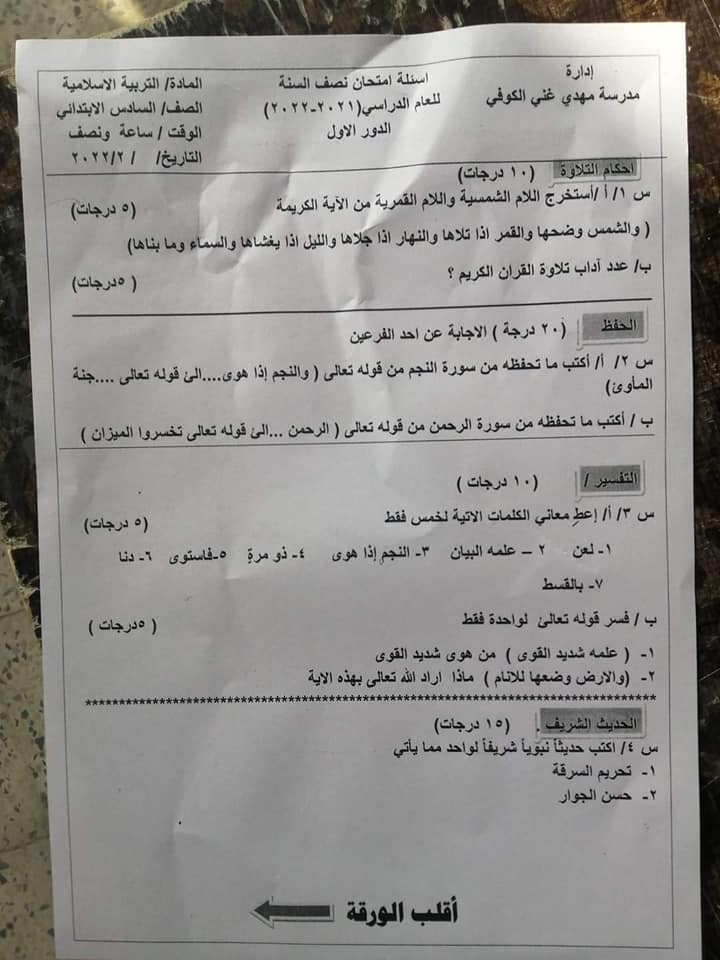 إدارة
مدرسة مهدي غني الكوفي
اسئلة امتحان نصف السنة
للعام الدراسي(٢٠٢١-٢٠٢٢)
الدور الاول
المادة/ التربية الاسلامية
الصف/ السادس الابتدائي
الوقت / ساعة ونصف
التاريخ/ / ٢٠٢٢/٢
احكام التلاوة (١٠ درجات)
س ١/ أ /أستخرج اللام الشمسية واللام القمرية من الآية الكريمة (٥ درجات)
( والشمس وضحها والقمر اذا تلاها والنهار اذا جلاها والليل اذا يغشاها والسماء وما بناها)
ب/ عدد آداب تلاوة القران الكريم ؟ (٥درجات)
الحفظ (٢٠ درجة ) الاجابة عن احد الفرعين
س ٢/ أ/ أكتب ما تحفظه من سورة النجم من قوله تعالى ( والنجم إذا هوى....الئ قوله تعالى ....جنة
المأوئ)
ب / أكتب ما تحفظه من سورة الرحمن من قوله تعالى ( الرحمن ...الئ قوله تعالى تخسروا الميزان )
التفسير / (١٠ درجات )
س ٣/ أ/ إعطِ معاني الكلمات الاتية لخمس فقط (٥ درجات)
١- لعن ٢ – علمه البيان ٣- النجم إذا هوى ٤- ذو مرةٍ ٥-فاستوى ٦- دنا
٧- بالقسط
ب / فسر قوله تعالئ لواحدة فقط (٥درجات )
١- ( علمه شديد القوى ) من هوى شديد القوى
٢- (والارض وضعها للانام ) ماذا اراد الله تعالى بهذه الاية
******************************************************************************
الحديث الشريف . (١٥ درجات)
س ٤/ اكتب حديثاً نبوّياً شريفاً لواحد مما يأتي
١- تحريم السرقة
٢- حسن الجوار
أقلب الورقة